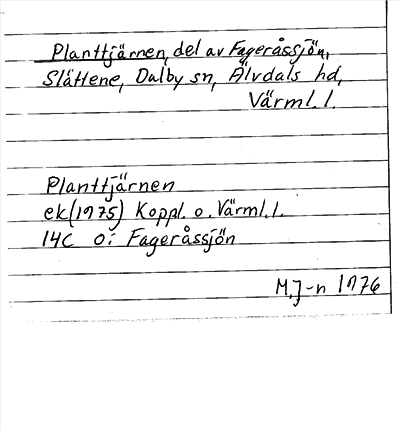 Planttjärnen, del av Fageråssjön,
Slättene, Dalby sn, Älvdals hd,
Värml. l.
Planttjärnen
ek (1975) Koppl. o. Värml. l.
14C o: Fageråssjön
M. J-n 1976